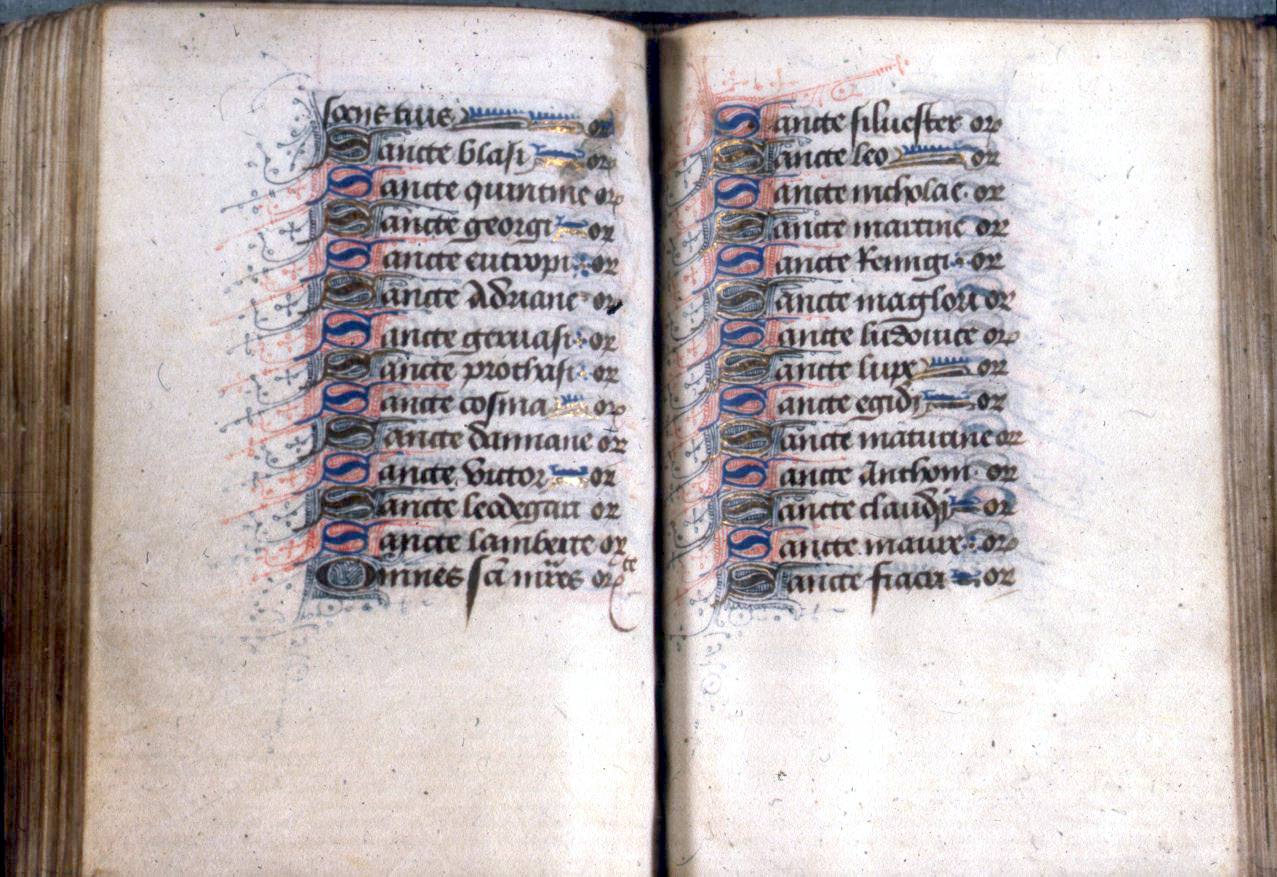 socijs tuis or
Sancte blasi or
Sancte quintine or
Sancte georgi or
Sancte eutropi or
Sancte Adriane or
Sancte geruasi or
Sancte prothasi or
Sancte cosma or
Sancte damiane or
Sancte Victor or
Sancte leodegari or
Sancte lamberte or
Omnes sci mres orte
Sancte siluester or
Sancte leo or
Sancte nicholae or
Sancte martine or
Sancte Remigi or
Sancte maglori or
Sancte ludouice or
Sancte lupe or
Sancte egidij or
Sancte maturine or
Sancte Anthoni or
Sancte claudij or
Sancte maure or
Sancte fiacri or